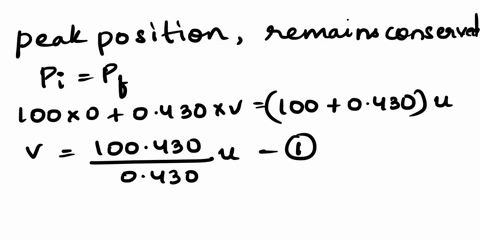 peak position, remains conserved
Pi = Pf
100 × 0 + 0.430 × v = (100 + 0.430) u
v = 100.430/0.430 u - ①